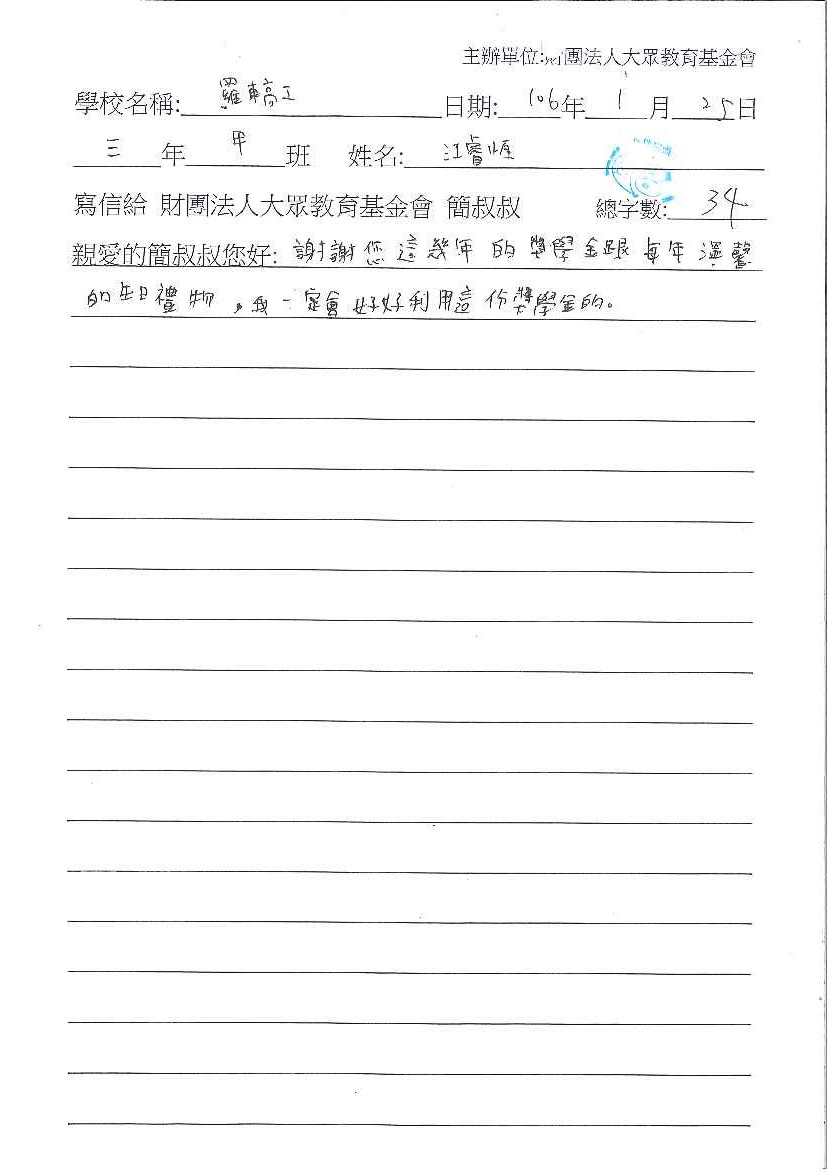 主辦單位:財團法人大眾教育基金會
學校名稱: 羅東高工 日期: 106年 1 月 25日
三 年 甲 班 姓名: 江睿
寫信給 財團法人大眾教育基金會 簡叔叔 總字數: 34
親愛的簡叔叔您好: 謝謝您這幾年的獎學金跟每年溫馨
的生日禮物,我一定會好好利用這份獎學金的。